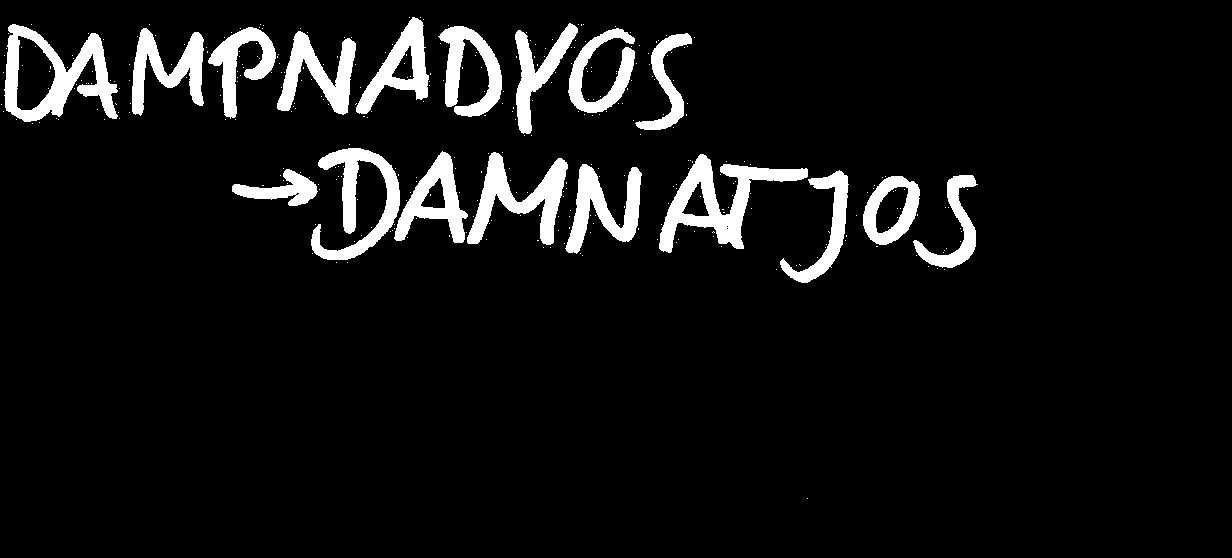 DAMPNADYOS
→DAMNATJOS